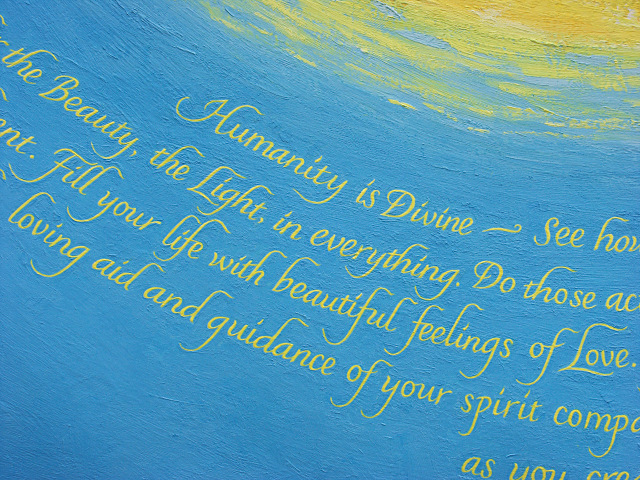 Humanity is Divine ~ See how
the Beauty, the Light, in everything. Do those
Fill your life with beautiful feelings of Love.
loving aid and guidance of your spirit
as you